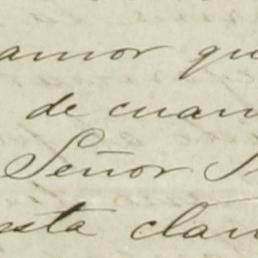 amor qu
de cuan
Señor
sta clar